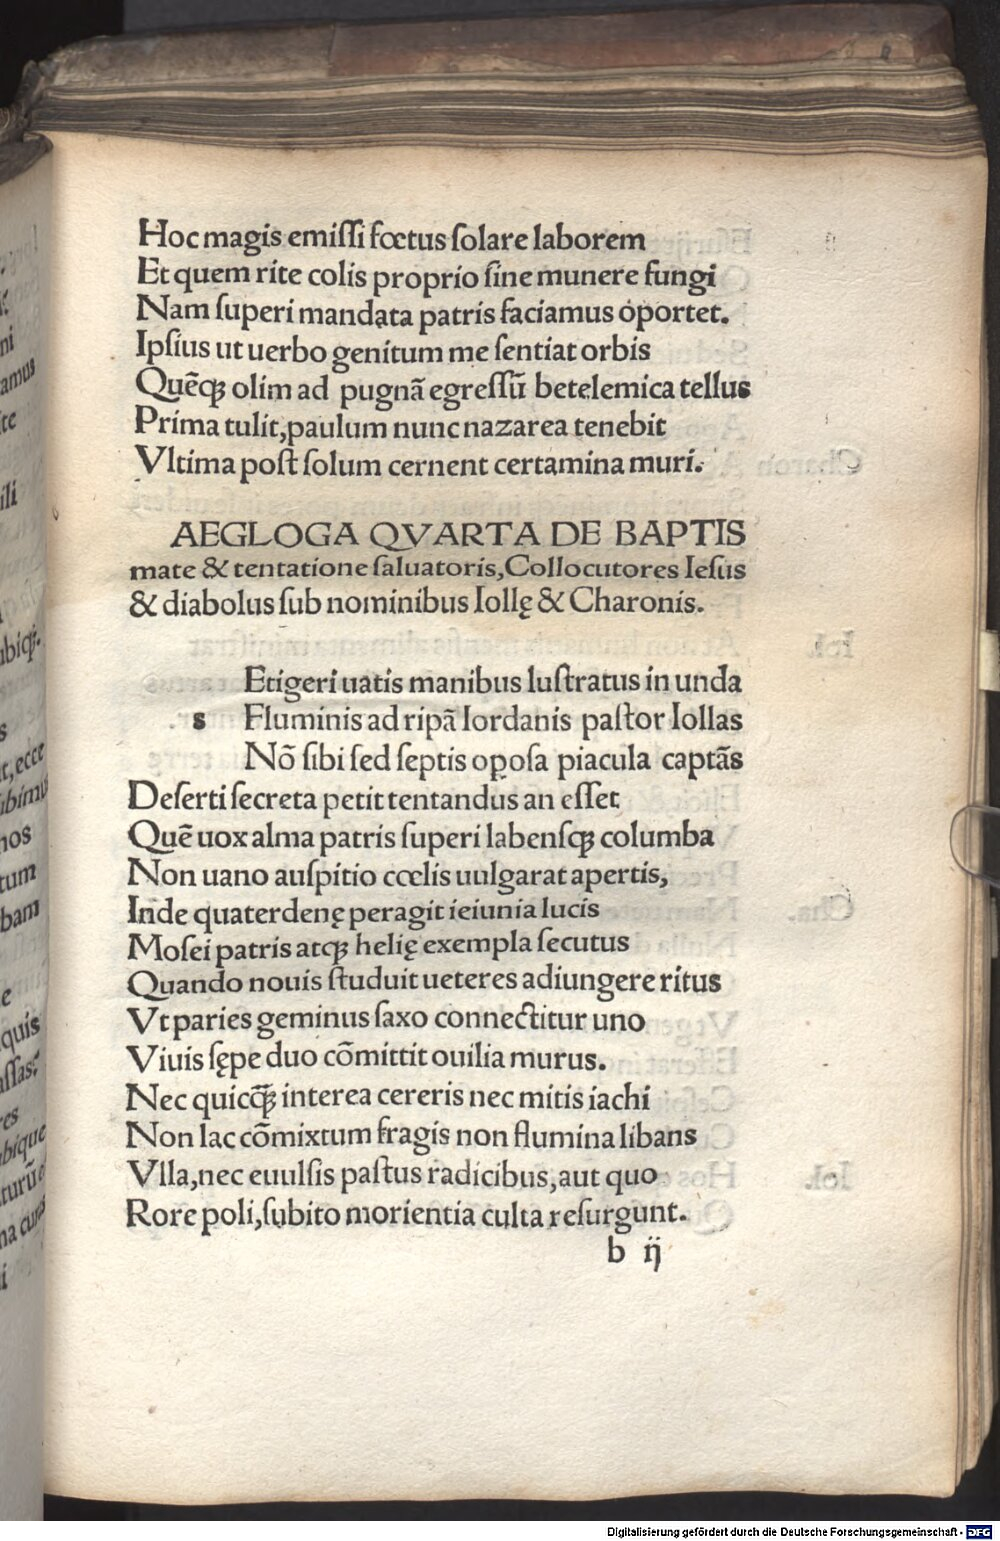 Hoc magis emiſſi fœtus ſolare laborem
Et quem rite colis proprio ſine munere fungi
Nam ſuperi mandata patris faciamus oportet.
Ipſius ut uerbo genitum me ſentiat orbis
Quēqꝫ olim ad pugnā egreſſū betelemica tellus
Prima tulit, paulum nunc nazarea tenebit
Vltima poſt ſolum cernent certamina muri.
AEGLOGA QVARTA DE BAPTIS
mate & tentatione ſaluatoris, Collocutores Ieſus
& diabolus ſub nominibus Iollę & Charonis.
Etigeri uatis manibus luſtratus in unda
s Fluminis ad ripā Iordanis paſtor Iollas
Nō ſibi ſed ſeptis opoſa piacula captās
Deſerti ſecreta petit tentandus an eſſet
Quē uox alma patris ſuperi labenſqꝫ columba
Non uano auſpitio cœlis uulgarat apertis,
Inde quaterdenę peragit ieiunia lucis
Moſei patris atqꝫ helię exempla ſecutus
Quando nouis ſtuduit ueteres adiungere ritus
Vt paries geminus ſaxo connectitur uno
Viuis ſępe duo cōmittit ouilia murus.
Nec quicq̄ꝫ interea cereris nec mitis iachi
Non lac cōmixtum fragis non flumina libans
Vlla, nec euulſis paſtus radicibus, aut quo
Rore poli, ſubito morientia culta reſurgunt.
b ij
Digitalisierung gefördert durch die Deutsche Forschungsgemeinschaft - DFG